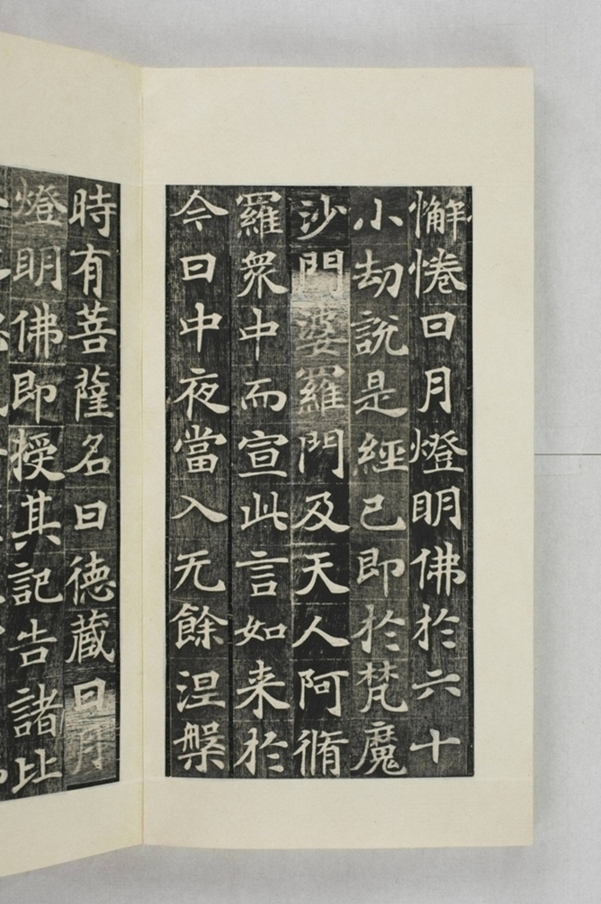 懈惓日月燈明佛於六十
小劫說是經已即於梵魔
沙門婆羅門及天人阿脩
羅衆中而宣此言如来於
今日中夜當入无餘涅槃
時有菩薩名曰德藏日月
燈明佛即授其記告諸比